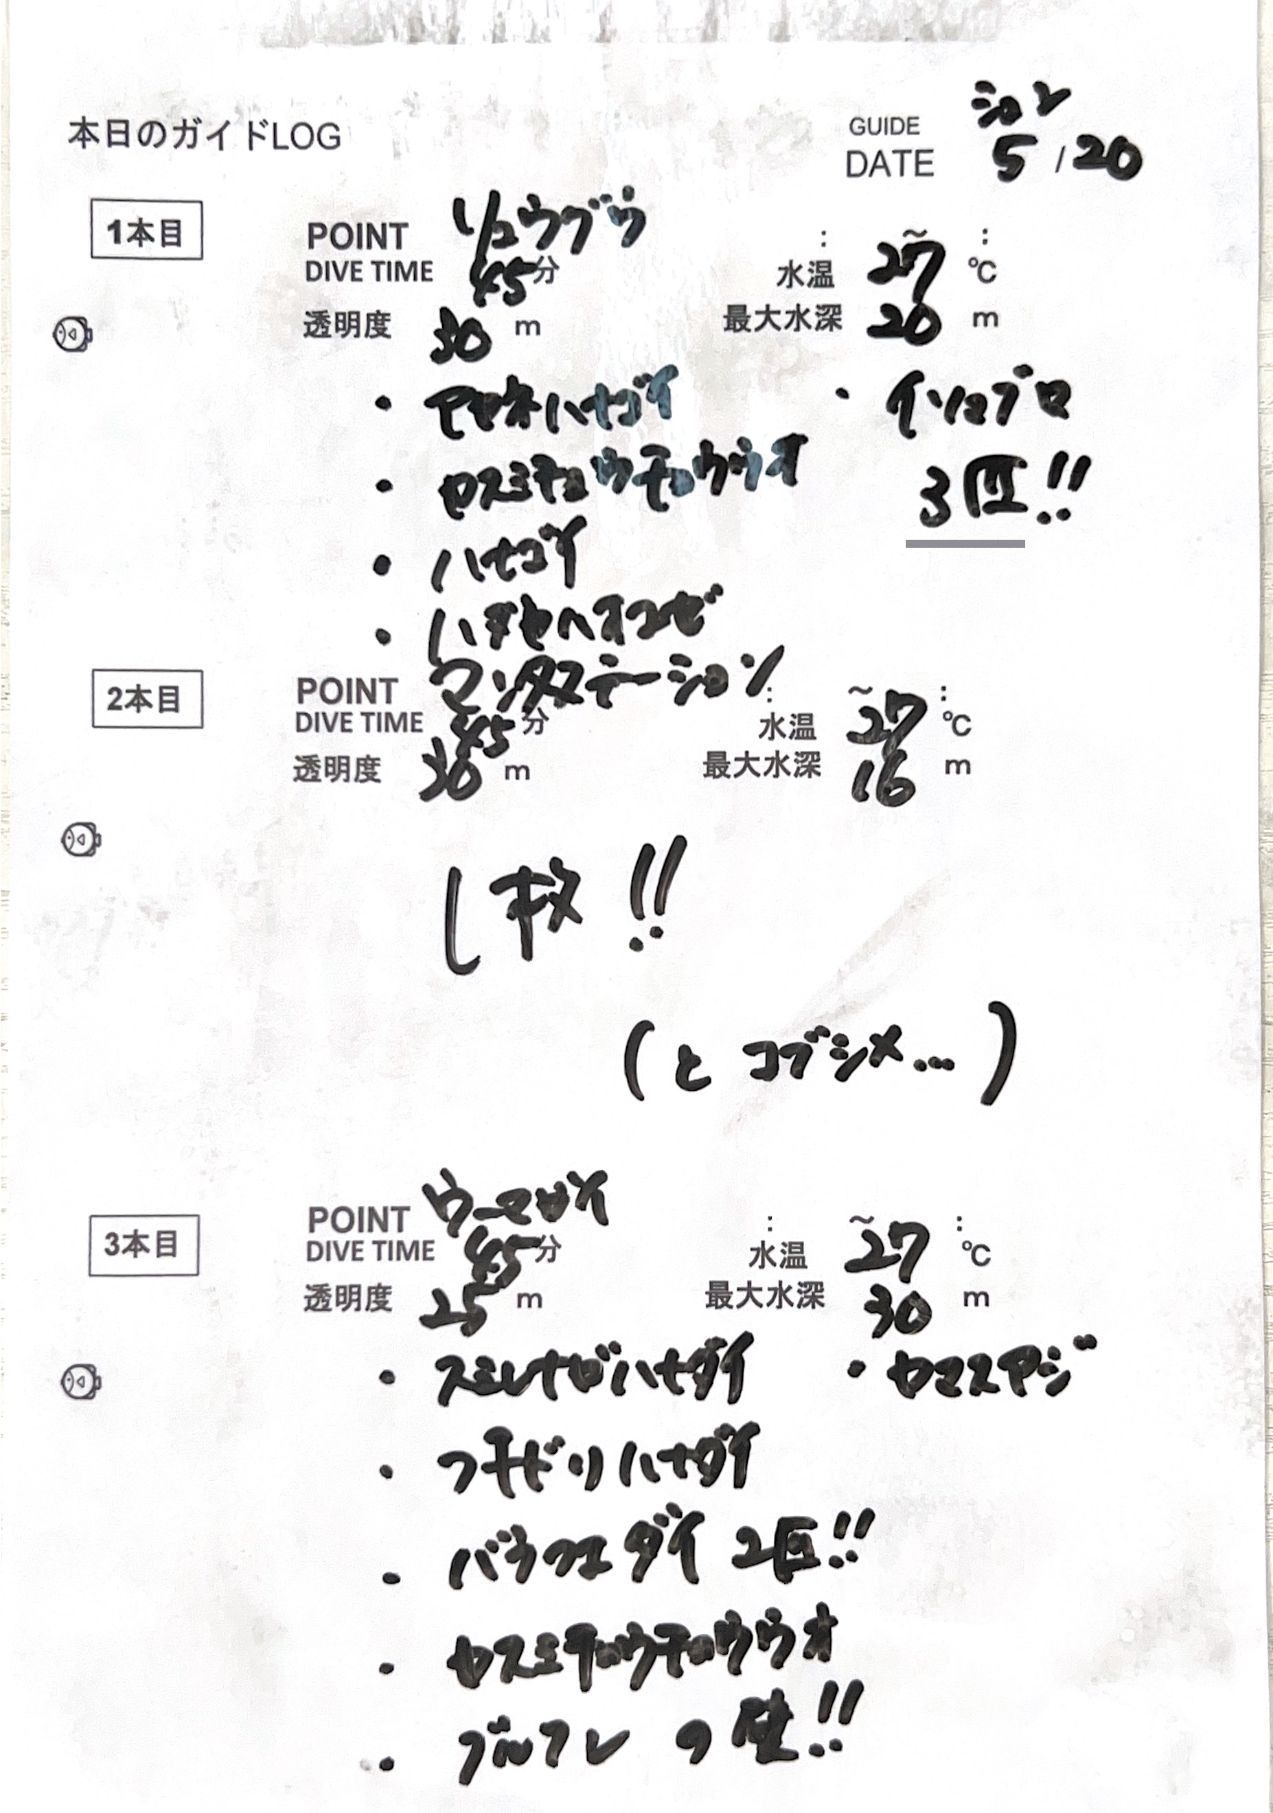 本日のガイドLOG
GUIDE ション
DATE 5/20
1本目
POINT リュウグウ : ~ :
DIVE TIME 45分 水温 27℃
透明度 30m 最大水深 20m
・アヤオハナゴイ ・イソマグロ
・ヤスミチョウチョウウオ 3匹!!
・ハナゴイ
・ハダカハオコゼ
2本目
POINT マンタステーション : ~ :
DIVE TIME 45分 水温 27℃
透明度 30m 最大水深 16m
1枚!!
(と コブシメ...)
3本目
POINT ウーマガイ : ~ :
DIVE TIME 45分 水温 27℃
透明度 25m 最大水深 30m
・スミレナガハナダイ ・カスミアジ
・フチドリハナダイ
・バラフエダイ 2匹!!
・ヤスミチョウチョウウオ
・グルクン の壁!!